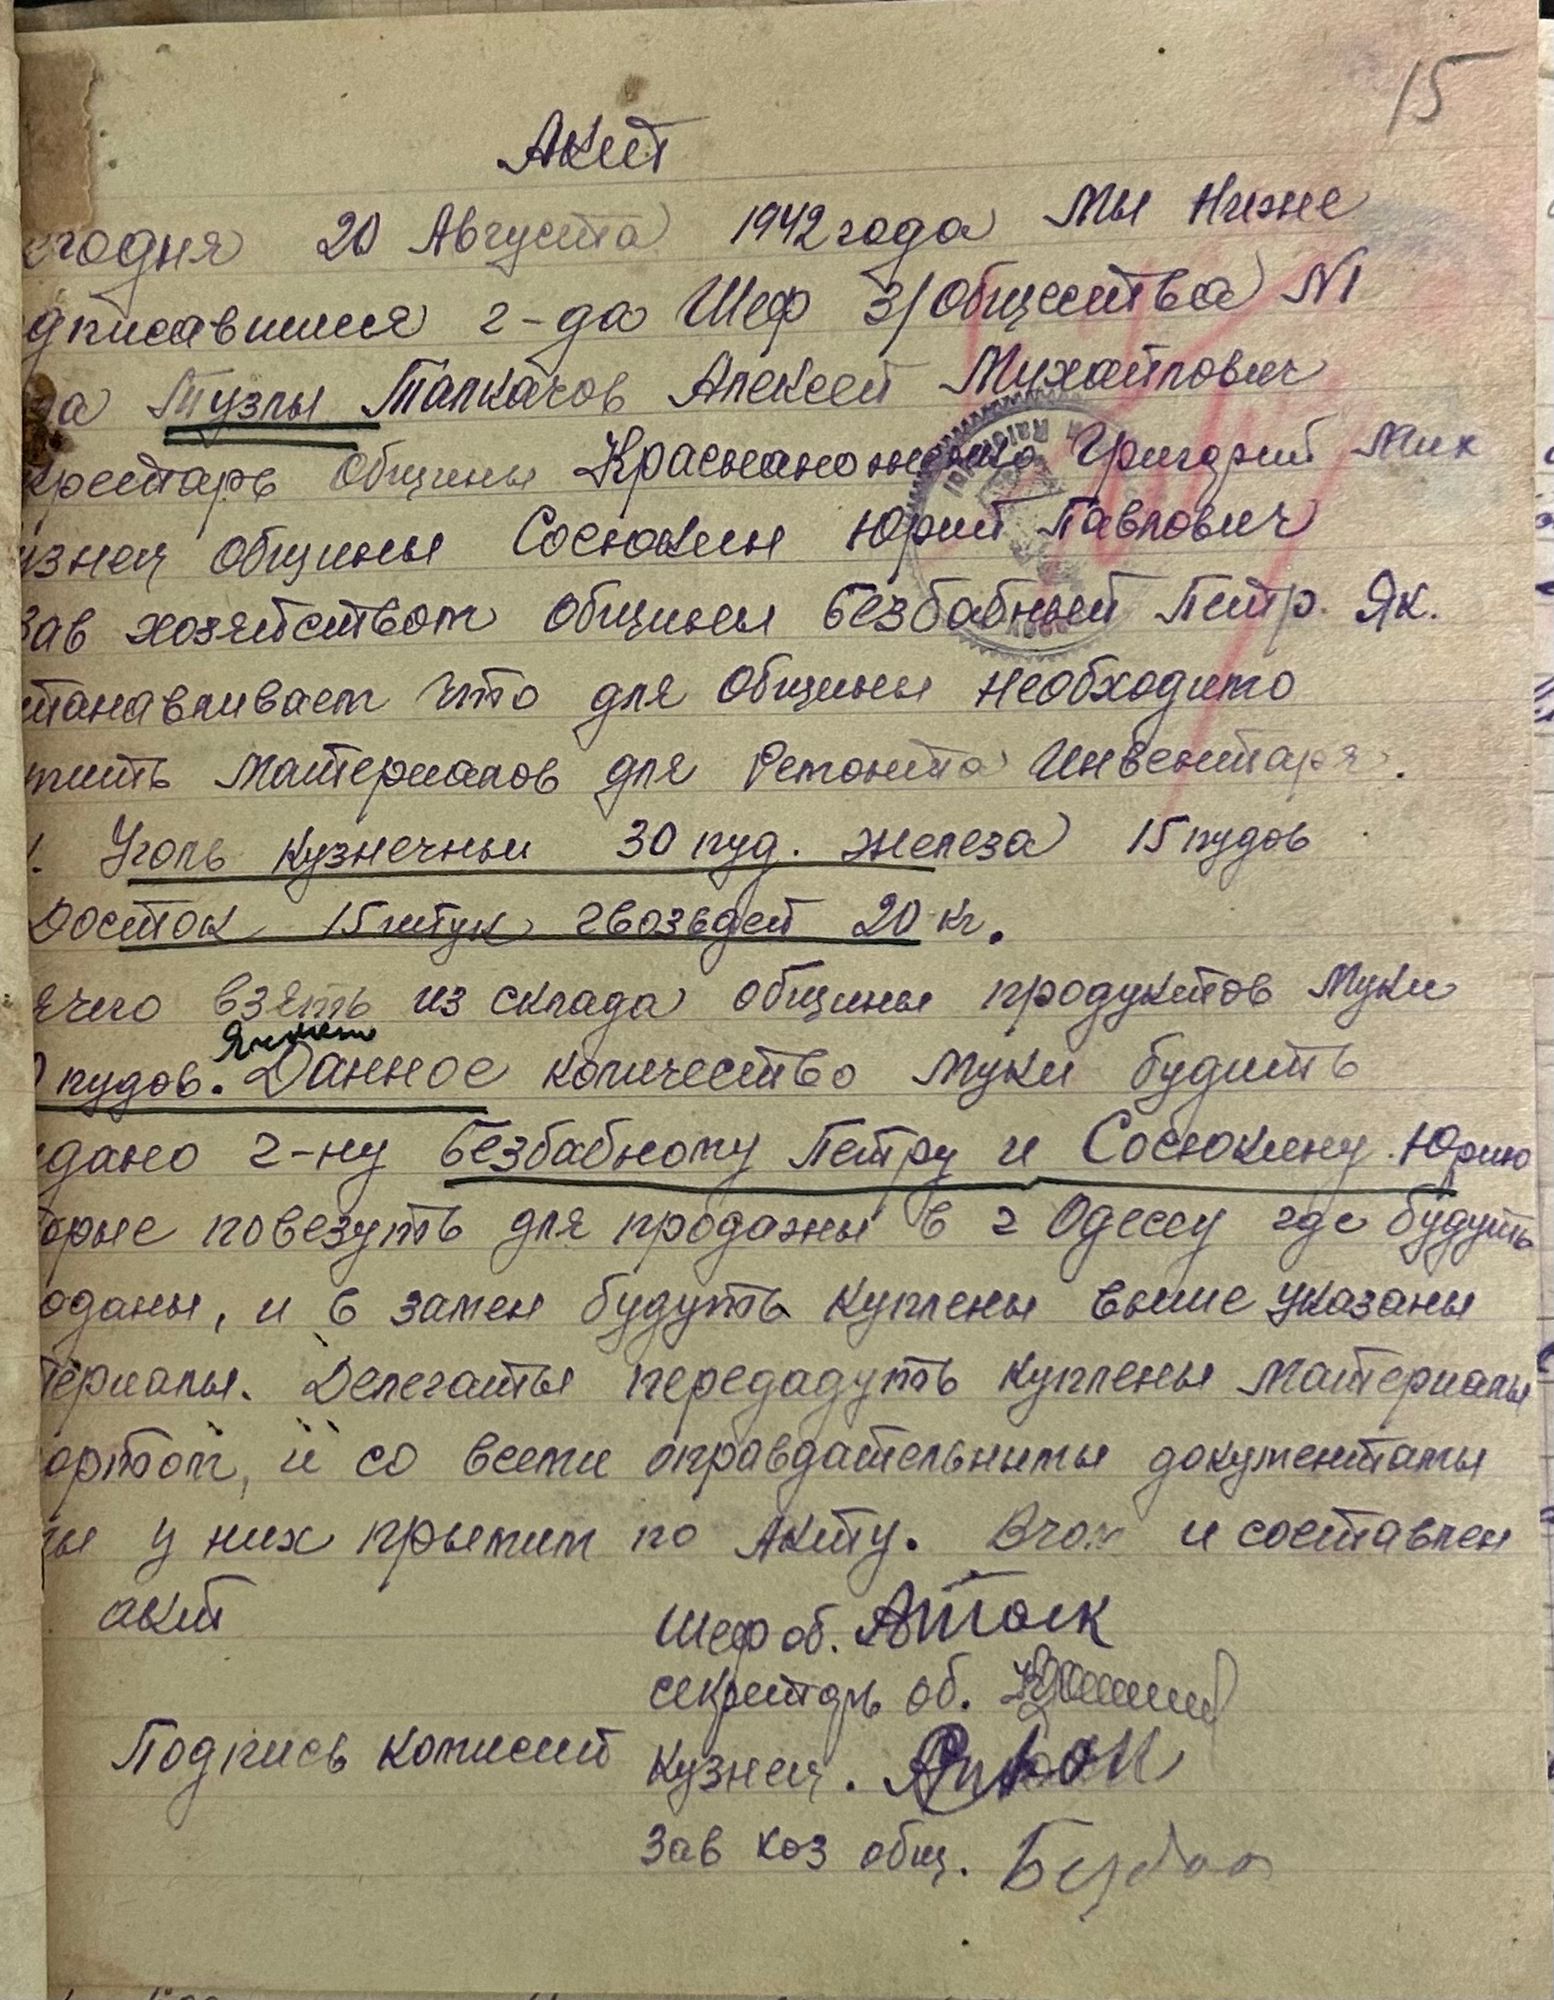 15
Акт
егодня 20 Августа 1942 года Мы Ниже
дписавшися г-да Шеф З/Общества N1
да Тузлы Талкачов Алексей Михайлович
кретарь Общины Краснаноженко Григорий Мих
узнец общины Сосюкин Юрий Павлович
Зав хозяйством Общины Безбабный Петр. Як.
станавливает что для общины необходимо
пить Материалов для Ремонта Инвентаря.
Уголь кузнечны 30 пуд. железа 15 пудов
Досток 15 штук гвоздей 20 кг.
взять из склада общины продуктов Муки
пудов. Ячмен Данное количество Муки будить
дано г-ну Безбабному Петру и Сосюкину Юрию
орые повезуть для продажы в г Одессу где будуть
оданы, и в замен будуть куплены выше указаны
териалы. Делегаты передадуть куплены Материалы
ортом, и со всеми оправдательнымы документамы
ы у них прымим по Акту. Вчом и составлен
акт
Шеф об. АТолк
секретарь об.
Подпись комисий Кузнец.
Зав хоз общ. Безбаб